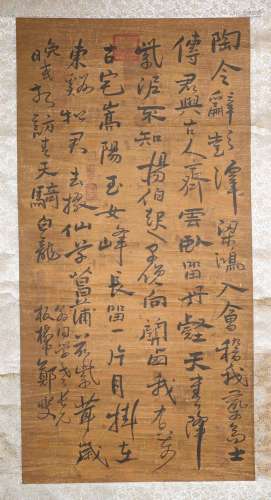 陶令辭彭澤梁鴻入會稽我尋高士
傳君與古人齊雲臥留丹壑天書降
紫泥不知楊伯起早晚向關西我有萬
古宅嵩陽玉女峰長留一片月掛在
東谿松君去掇仙草菖蒲花紫茸歲
晚或相訪青天騎白龍
同學老長兄
板橋鄭燮